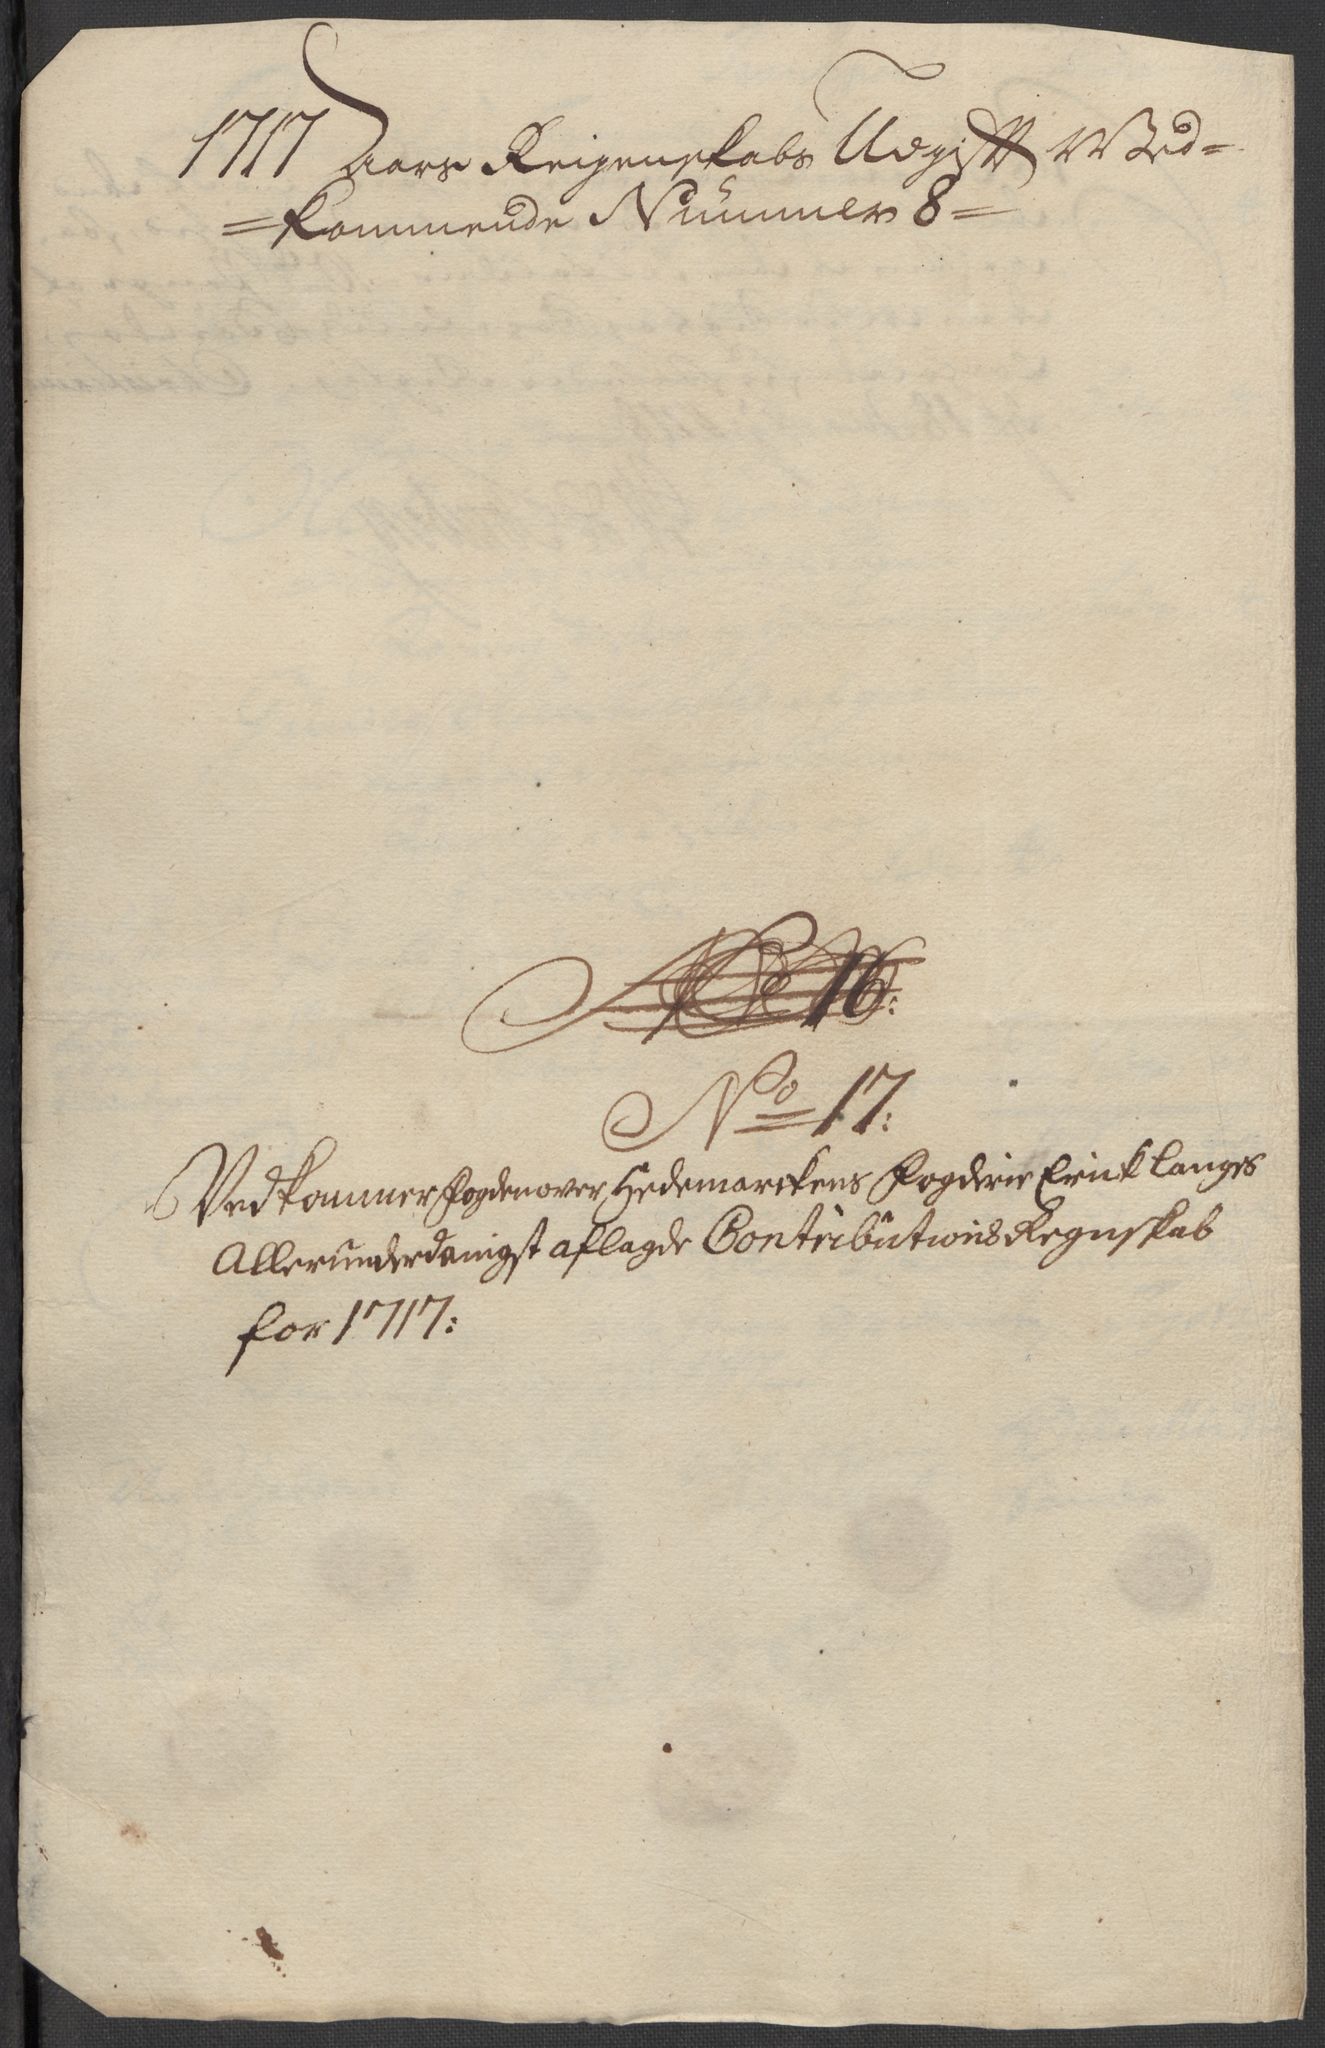 1717 Aars Reigenskabs Udgifft Ved=
=kommende Nummer 8=
No 16:
No 17:
Vedkommer fogden over Hedemarckens fogderie Erick Langes
Allerunderdanigst aflagde Contributions Regnskab
for 1717: